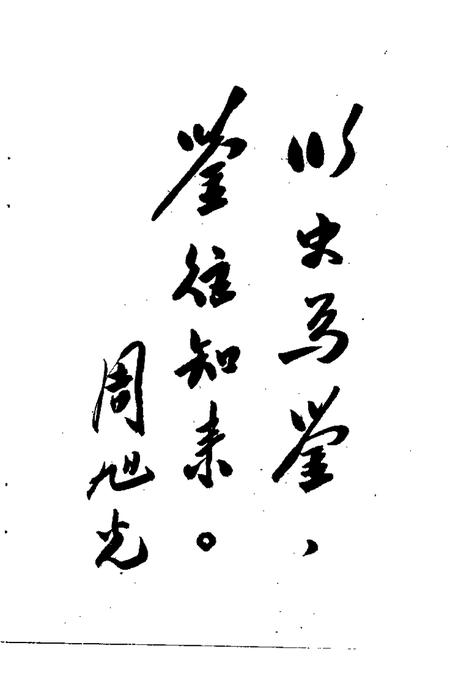 以史为鉴，
鉴往知来。
周旭光